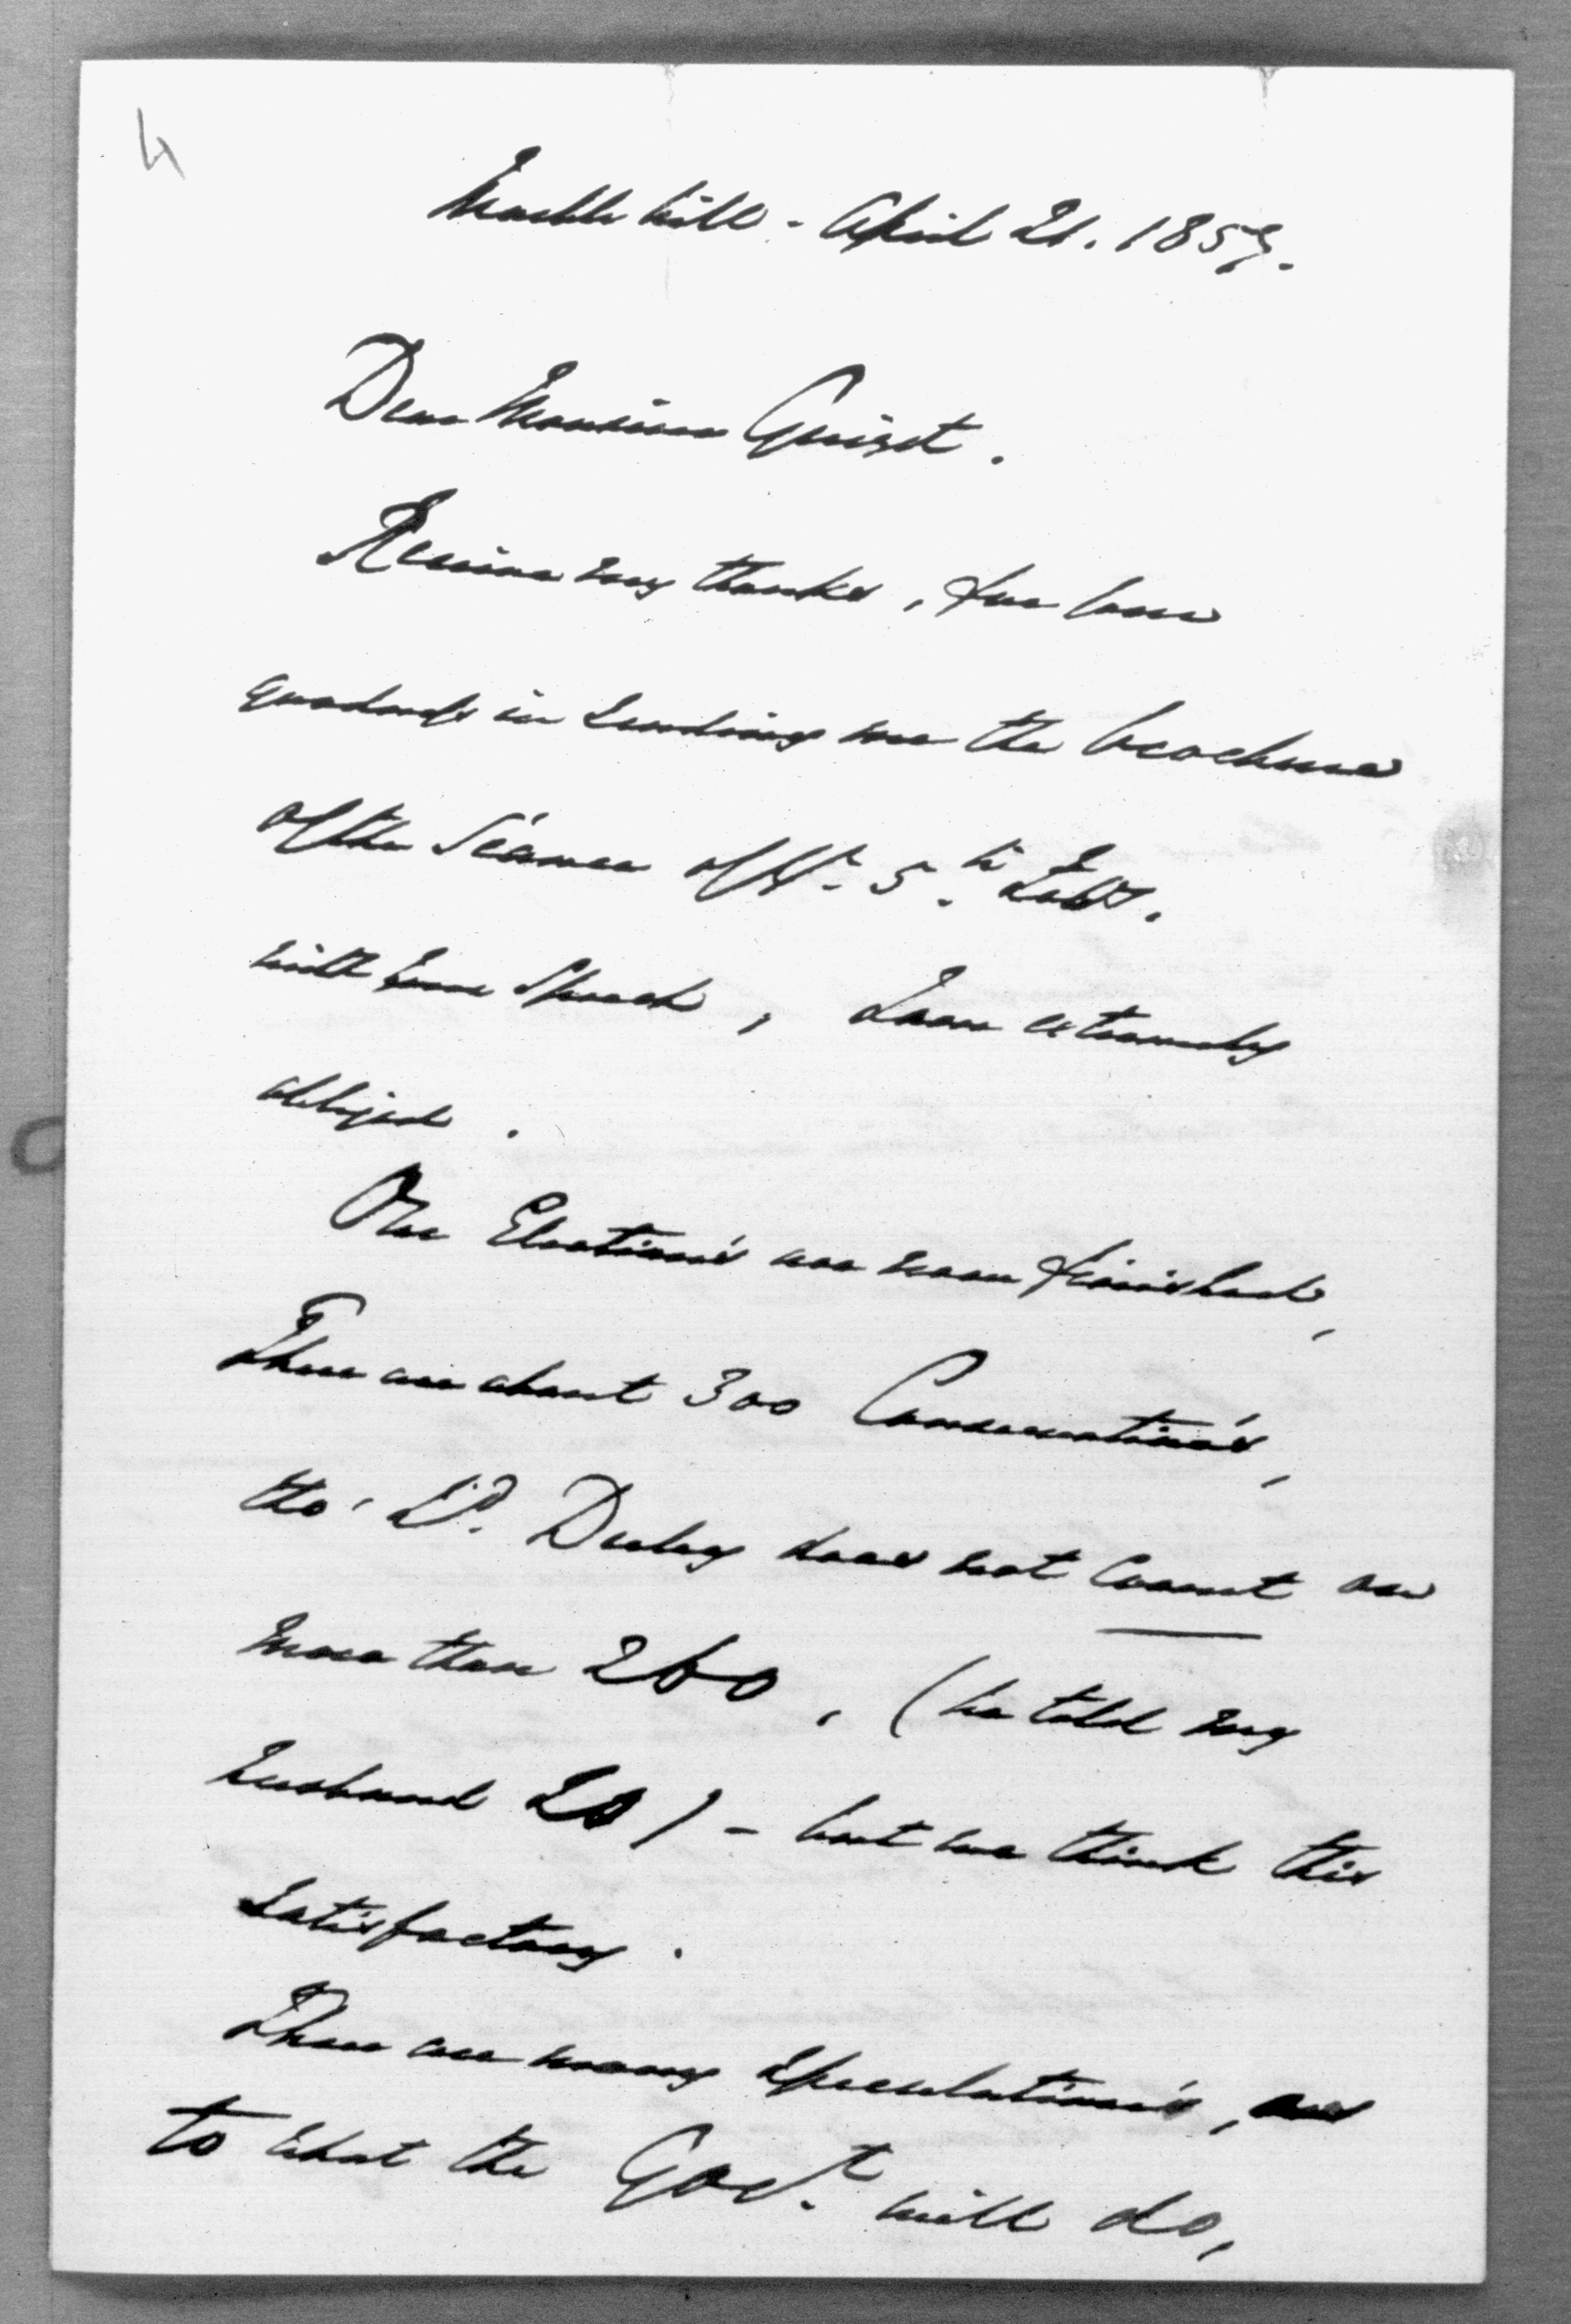 4
Marble hill - April 21. 1857.
Dear Monsieur Guizot.
Receive my thanks, for your
goodness in sending me the brochure
of the Séance of the 5.th Inst.
with your Speech, I am extremely
obliged.
Our Elections are now finished,
There are about 300 Conservatives,
tho' L.d Derby does not count on
more than 260, (he told my
husband) - but we think this
satisfactory.
There are many speculations, as
to what the Gov.t will do,